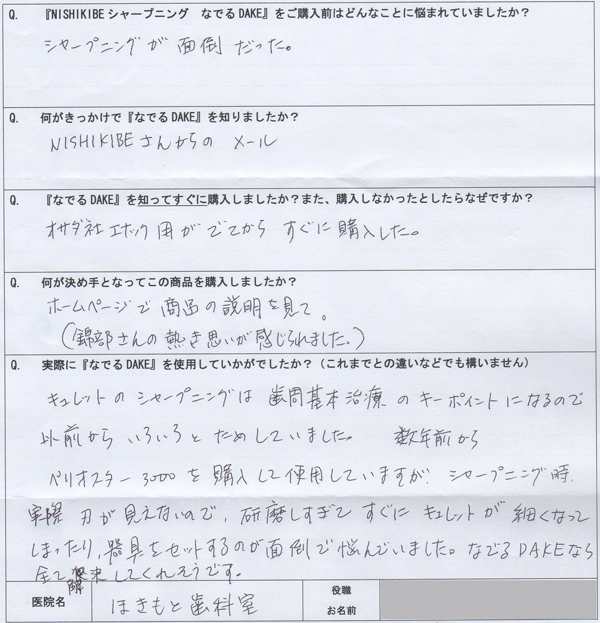 Q. 『NISHIKIBEシャープニング なでるDAKE』をご購入前はどんなことに悩まれていましたか？
シャープニングが面倒だった。
Q. 何がきっかけで『なでるDAKE』を知りましたか？
NISHIKIBEさんからの メール
Q. 『なでるDAKE』を知ってすぐに購入しましたか？また、購入しなかったとしたらなぜですか？
オサダ社エナック用がでてからすぐに購入した。
Q. 何が決め手となってこの商品を購入しましたか？
ホームページで商品の説明を見て。
（錦部さんの熱き思いが感じられました。）
Q. 実際に『なでるDAKE』を使用していかがでしたか？（これまでとの違いなどでも構いません）
キュレットのシャープニングは歯周基本治療のキーポイントになるので
以前からいろいろとためしていました。 数年前から
ペリオスター3000を購入して使用していますが、シャープニング時、
実際刃が見えないので、研磨しすぎてすぐにキュレットが細くなって
しまったり、器具をセットするのが面倒で悩んでいました。なでるDAKEなら
全て解決してくれそうです。
医院名 ほきもと歯科室 役職
お名前